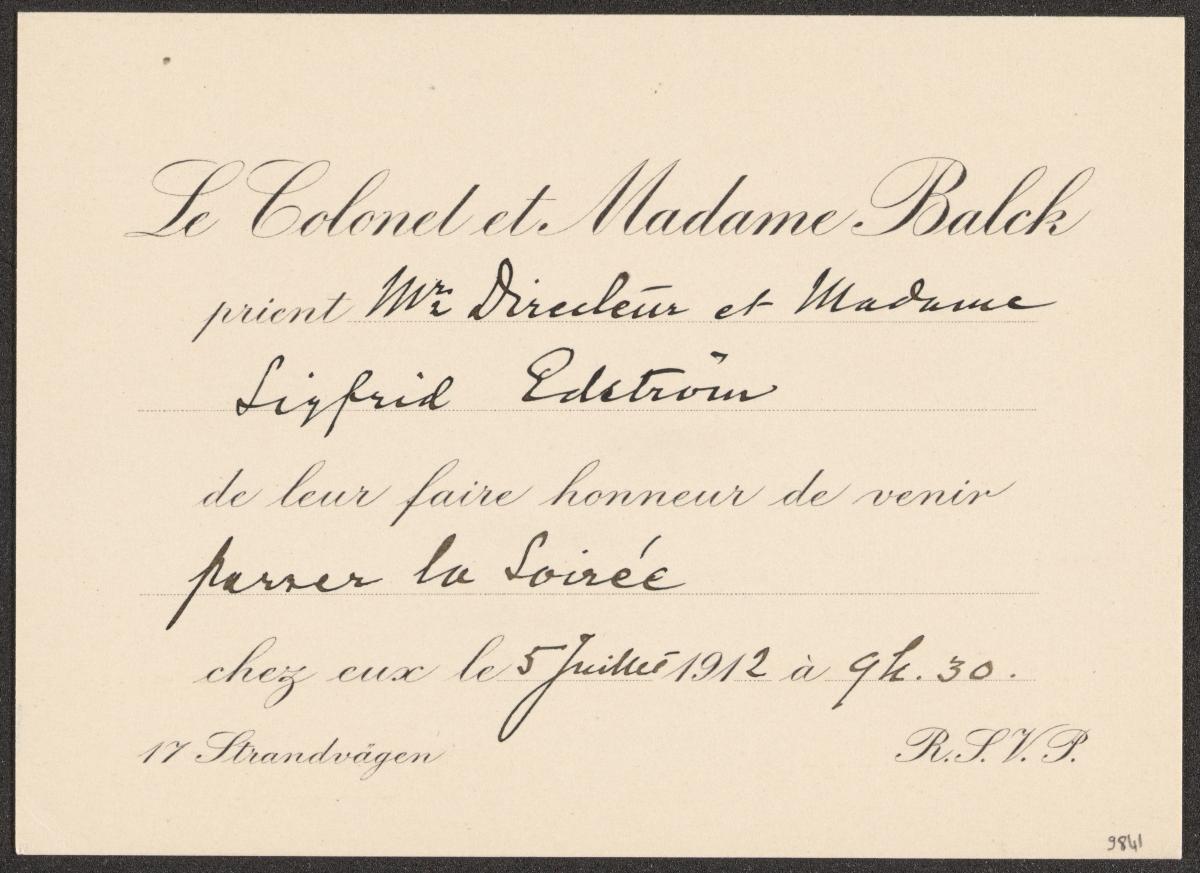 Le Colonel et Madame Balck
prient Mr Directeur et Madame
Sigfrid Edström
de leur faire honneur de venir
passer la Soirée
chez eux le 5 Juillet 1912 à 9h. 30.
17 Strandvägen
R.S.V.P.
9841